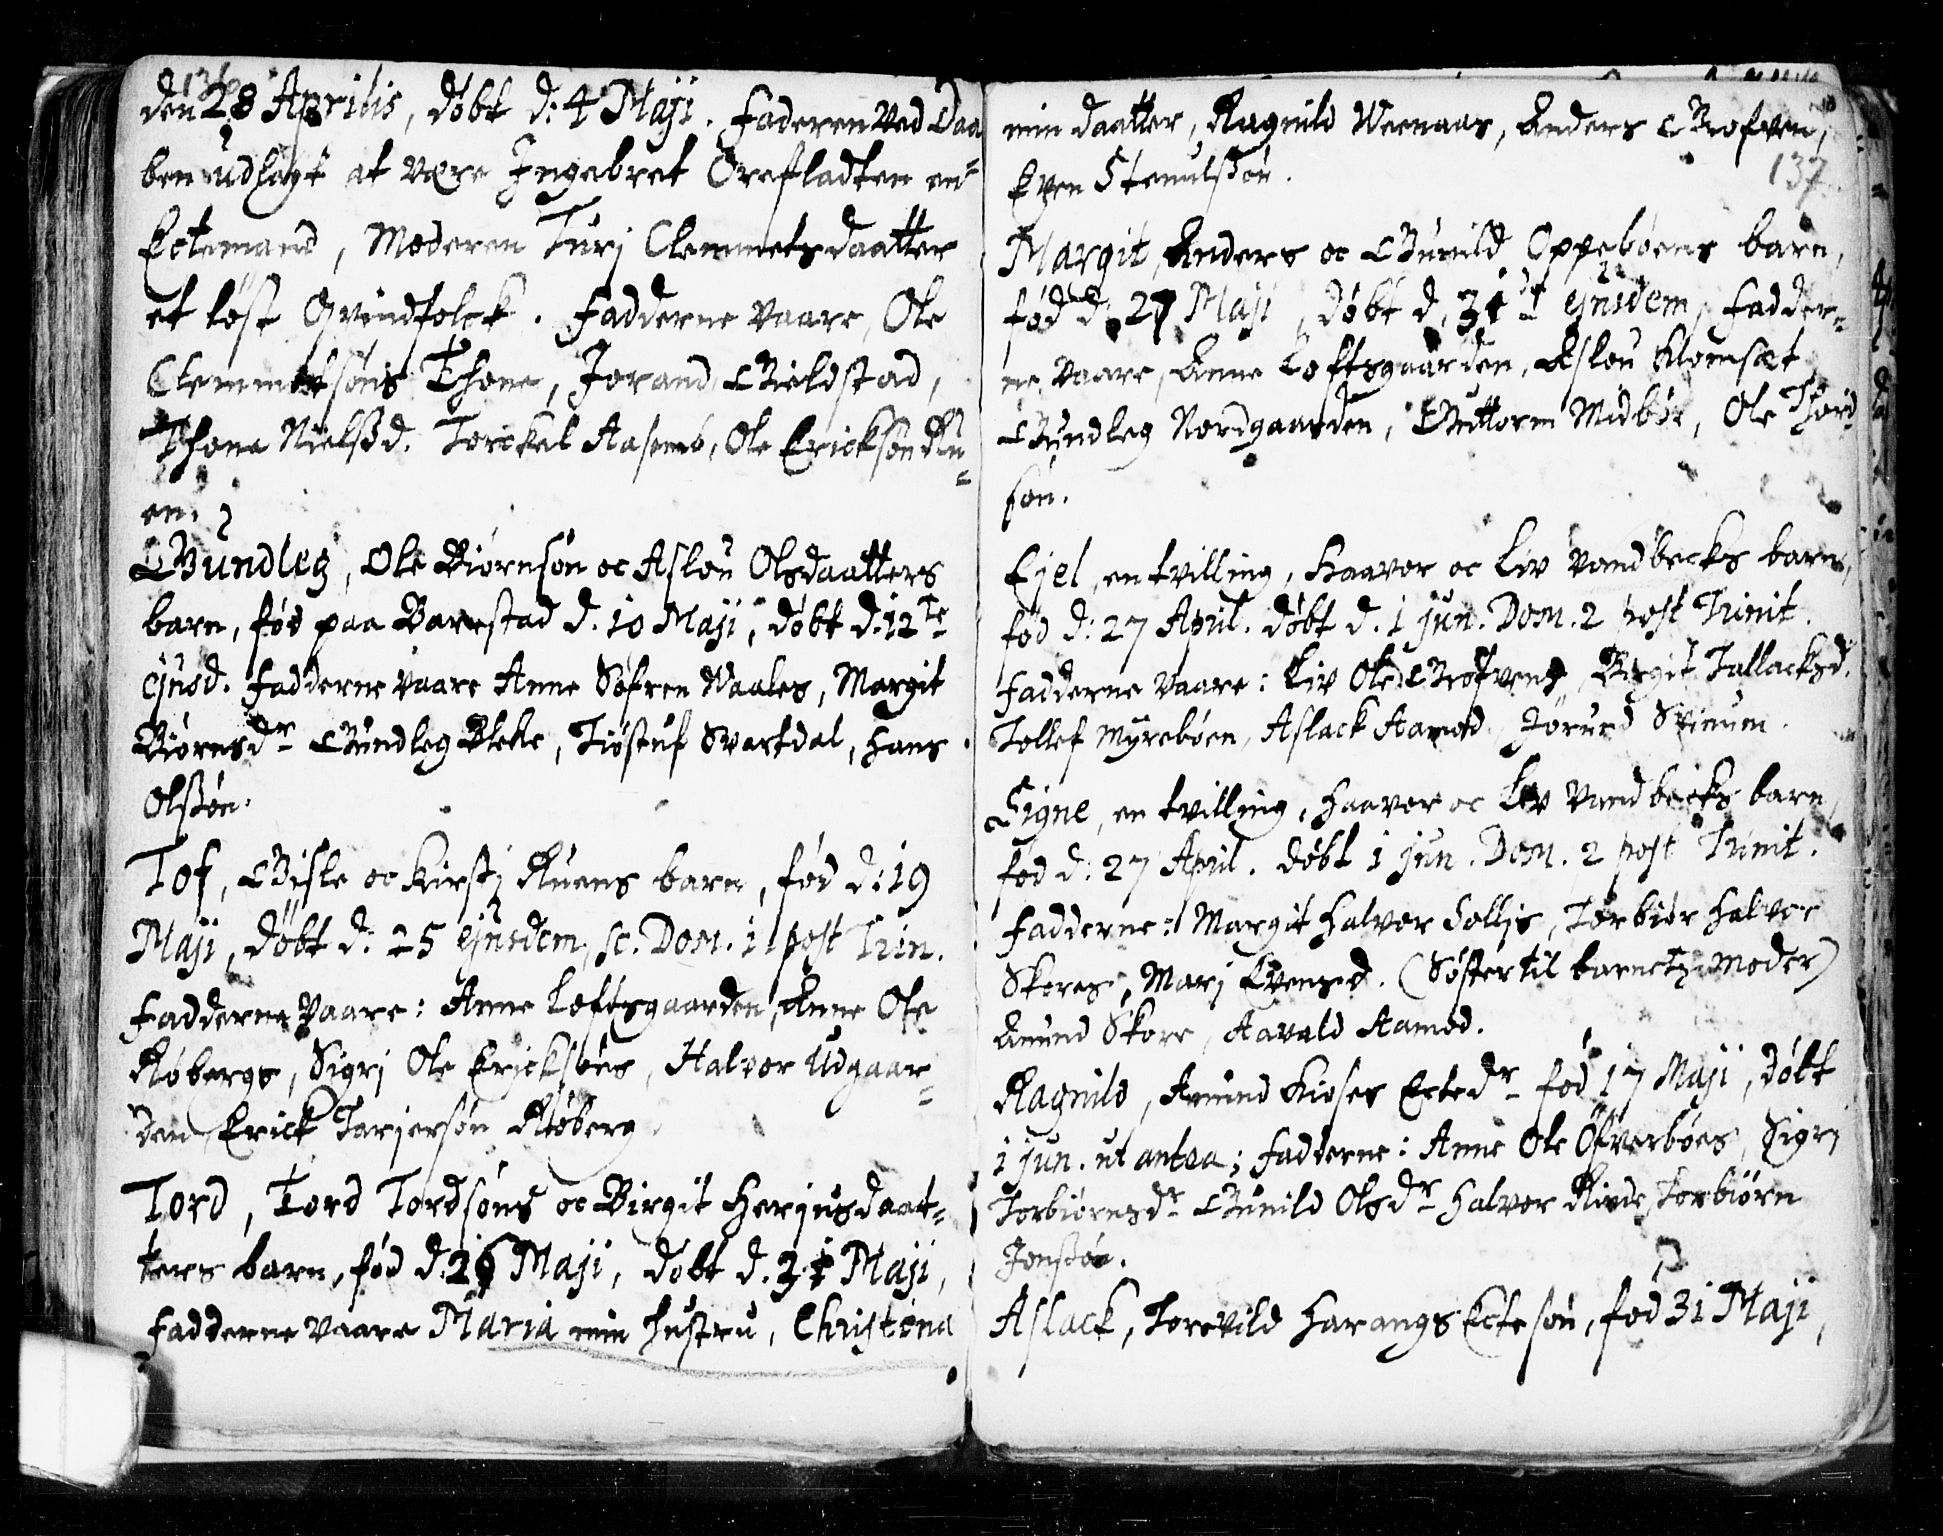 136
den 28 Aprilis, døbt d: 4 Maji. Faderen ved Daa-
ben udlagt at være Ingebret Orefladten en
Ectemand, Moderen Turj Clemmetsdaatter
et løst Qvindfolck. Fadderne vaare, Ole
Clemmetsøns Thone, Jorand Gieldstad,
Thone Nielsd. Torckel Aasembø, Ole Ericksøn Ru-
en.
Gundleg, Ole Biørnsøn oc Aslou Olsdaatters
barn, fød paa Barstad d. 10 Maji, døbt d: 12te
ejusd. Fadderne vaare Anne Søfren Waales, Margit
Biørnsdr Gundleg Bleke, Tiøstuf Svartdal, Hans
Olssøn.
Tof, Gisle oc Kirstj Ruens barn, fød d: 19
Maji, døbt d: 25 ejusdem, sc. Dom. 1 post Trin.
Fadderne vaare: Anne Loftsgaarden, Anne Ole
Røbergs, Sigrj Ole Ericksøns, Halvor Udgaar-
den, Erick Tarjersøn Røberg.
Tord, Tord Tordsøns oc Birgit Herjusdaat-
ters barn, fød d. 26 Maji, døbt d. 31 Maji,
Fadderne vaare Maria min hustru, Christena
min daatter, Ragnild Weenaas, Anders Grofven,
Even Stenulssøn.
137
Margit, Anders oc Gunild Oppebøens barn,
fød d. 27 Maji, døbt d. 31 ejusdem, Fadder-
ne vaare, Anne Loftsgaarden, Aslou Klomsæt,
Gundleg Nordgaarden, Guttorm Midbøe, Ole Thord
søn.
Ejel, en tvilling, Haavor oc Liv Vandbecks barn,
fød d: 27 April. døbt d. 1 Jun. Dom. 2 post Trinit.
Fadderne vaare: Liv Ole Grofvens, Birgit Tallacksd.
Tollef Myrebøen, Aslack Aamod, Jørund Svinum.
Signe, en tvilling, Haavor oc Liv Vandbecks barn,
fød d: 27 April. døbt 1 Jun. Dom. 2 post Trinit.
Fadderne: Margit Halvor Sollis, Torbiør Halvor
Skores, Marj Evensd. (Søster til barnetz Moder)
Amund Skore, Aavald Aamod.
Ragnild, Amund Kioses Ectedr fød 17 Maji, døbt
1 Jun. ut antea; Fadderne: Anne Ole Öfverbøes, Sigrj
Torbiørnsdr Gunild Olsdr Halvor Rinde, Torbiørn
Jonssøn.
Aslack, Torevild Harangs Ectesøn, fød 31 Maji,